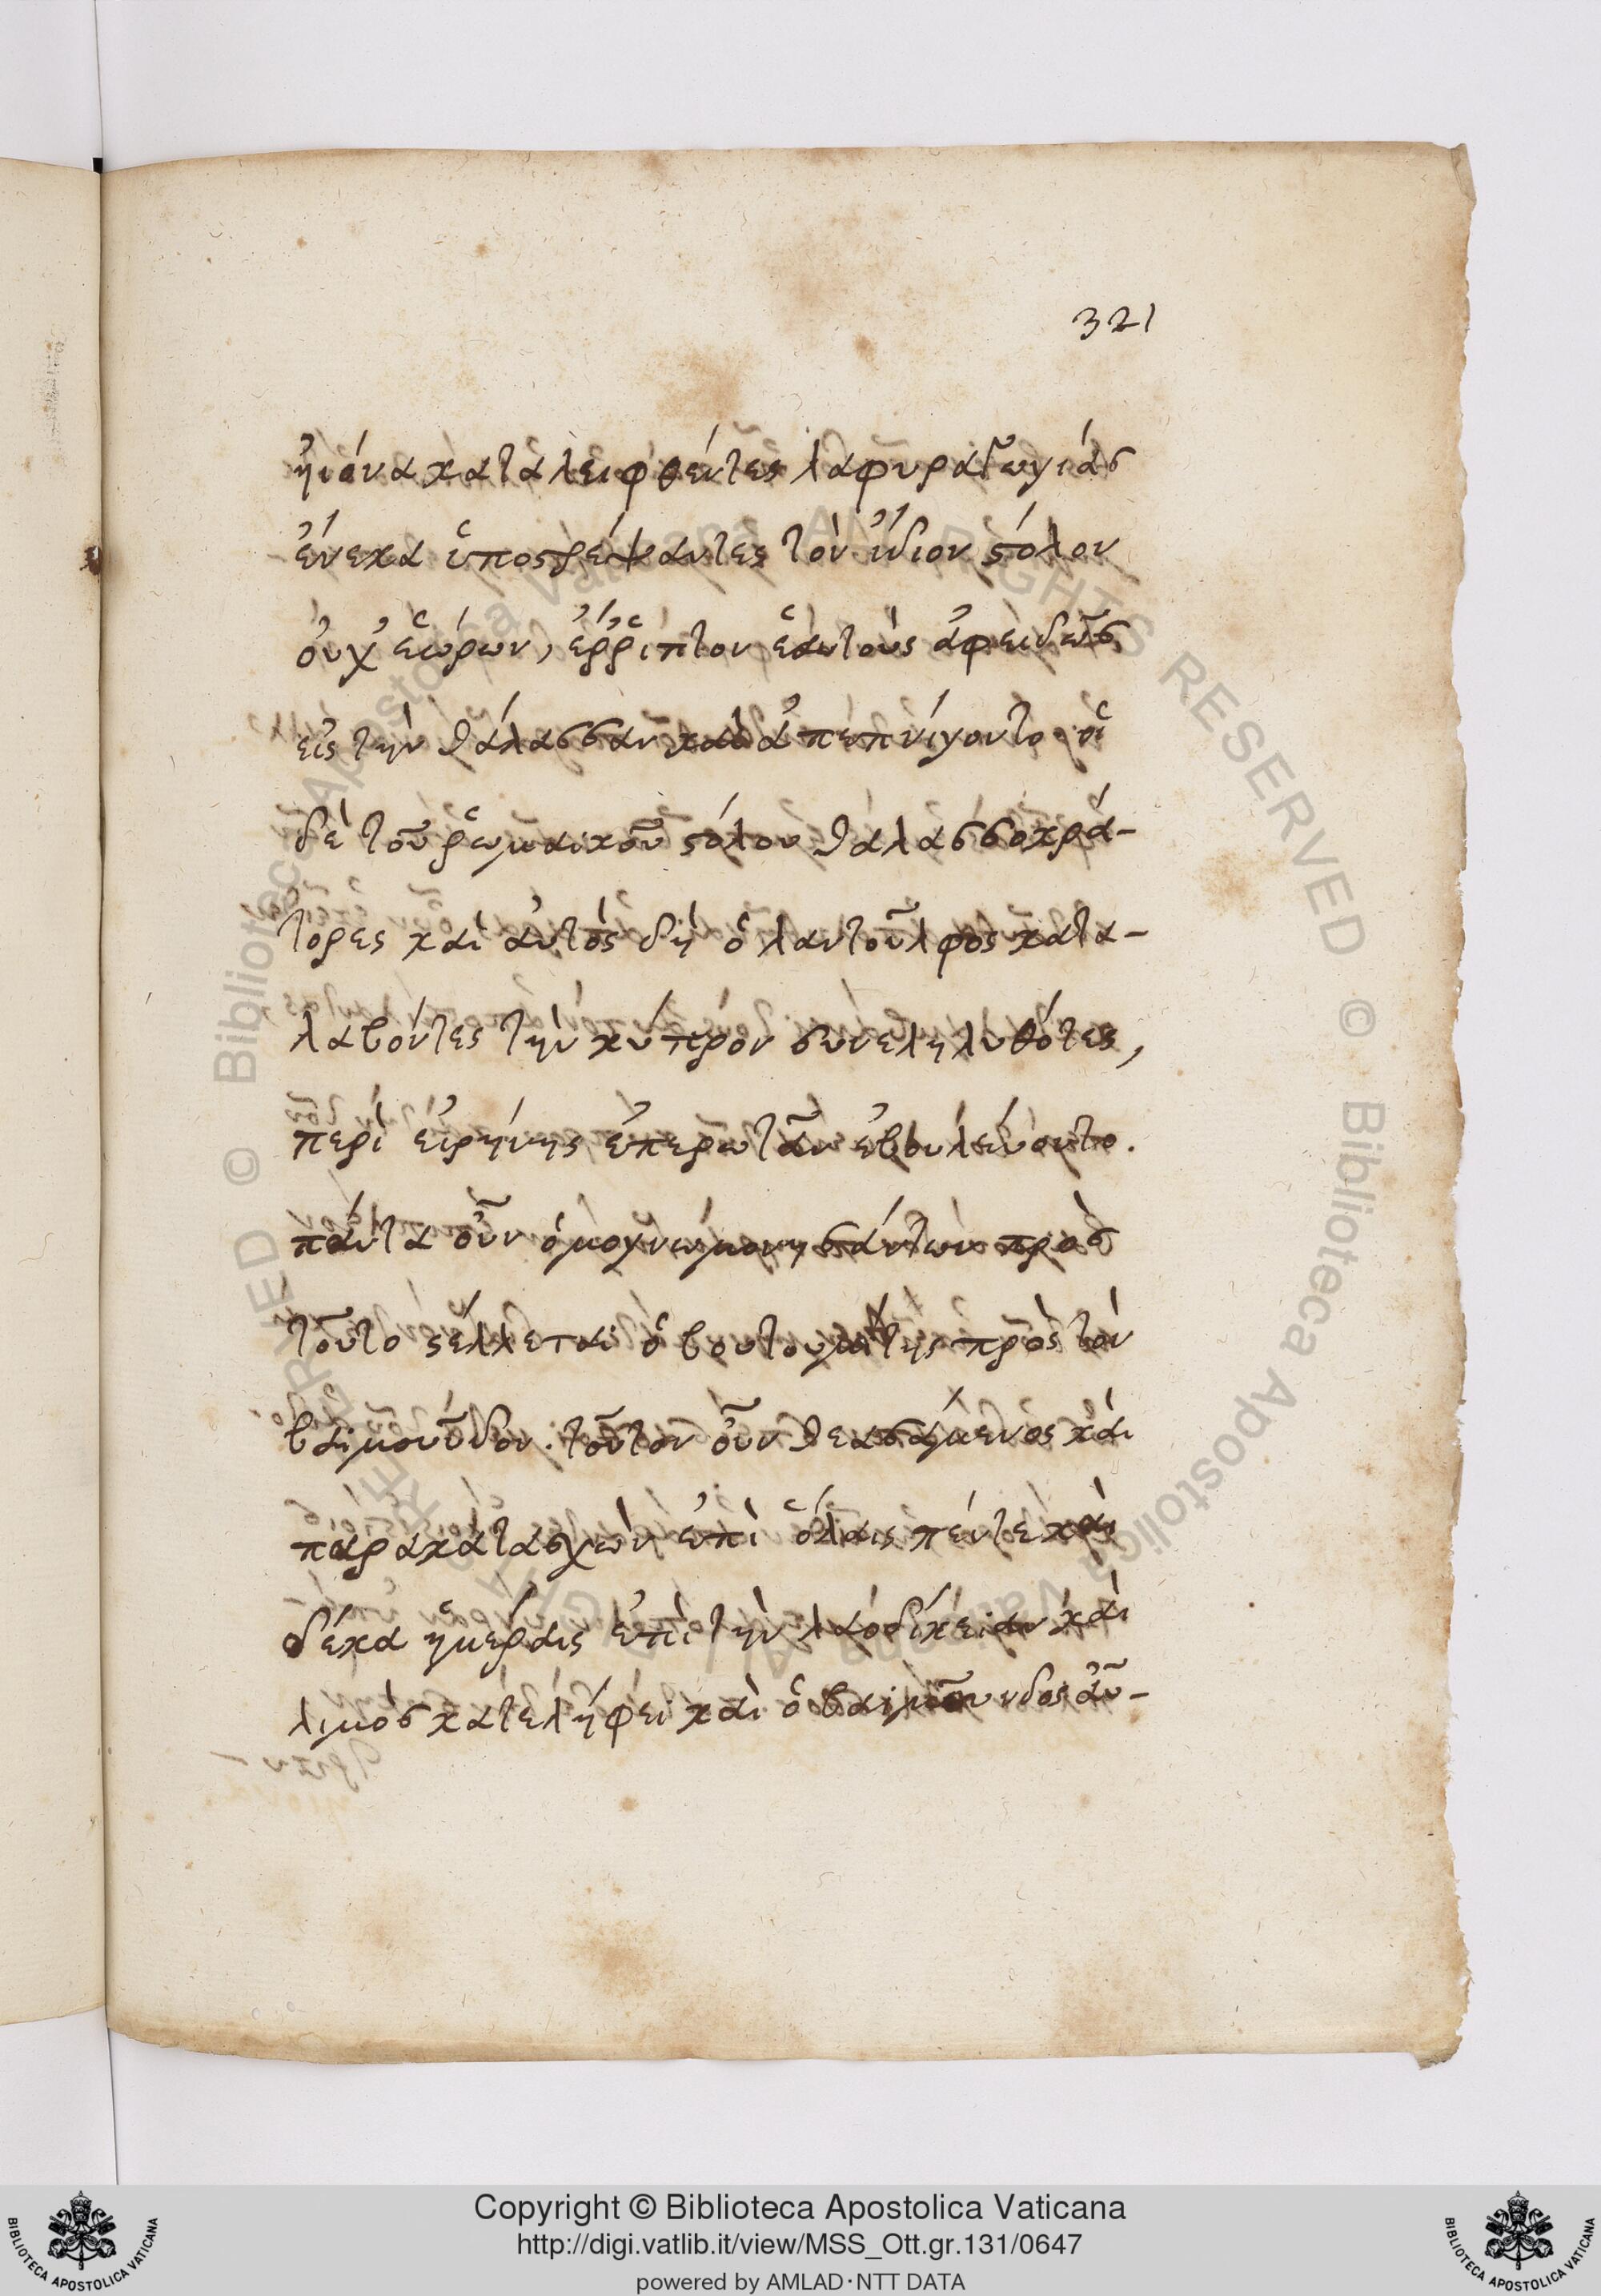 321
ἠιόνα καταλειφθέντες λαφυραγωγιάς
ἕνεκα ὑποστρέψαντες τὸν ἴδιον στόλον
οὐχ ἑώρων, ἐῤῥίπτον ἑαυτοὺς ἀφειδῶς
εἰς τὴν θάλασσαν καὶ ἀπεπνίγοντο. οἱ
δὲ τοῦ ῥωμαικοῦ στόλου θαλασσοκρά-
τορες καὶ αὐτὸς δὴ ὁ λαντοῦλφος κατα-
λαβόντες τὴν κύπρον συνεληλυθότες,
περὶ εἰρήνης ἐπερωτᾶν ἐβουλεύοντο.
πάντα οὖν ὁμογνωμονησάντων πρὸς
τοῦτο στέλλεται ὁ βουτουμίτης πρὸς τὸν
βαϊμοῦνδον. τοῦτον οὖν θεασάμενος καὶ
παρακατασχὼν ἐπὶ ὅλαις πέντε καὶ
δέκα ἡμέραις ἐπὶ τὴν λαοδίκειαν καὶ
λιμὸς κατελήφει καὶ ὁ βαϊμοῦνδος αὖ-
Copyright © Biblioteca Apostolica Vaticana
http://digi.vatlib.it/view/MSS_Ott.gr.131/0647
powered by AMLAD·NTT DATA
BIBLIOTECA APOSTOLICA VATICANA
BIBLIOTECA APOSTOLICA VATICANA